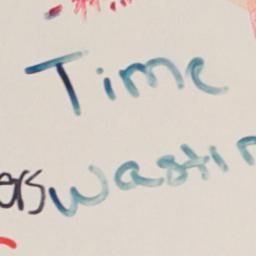 Time
ers wastin